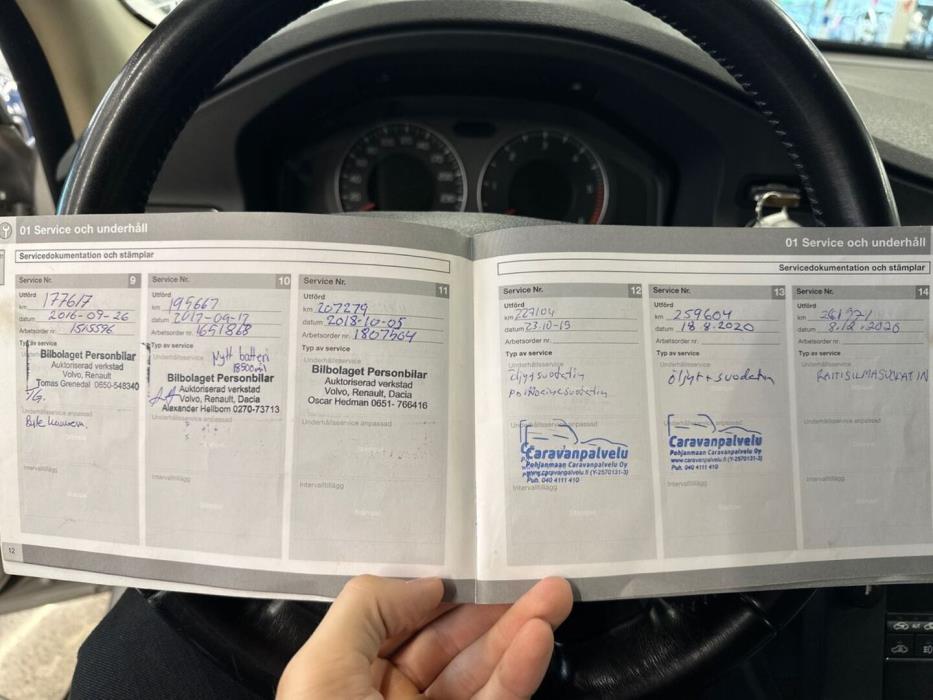 01 Service och underhåll
Servicedokumentation och stämplar
Service Nr. 9
Utförd
km 177617
datum 2016-09-26
Arbetsorder nr. 1515596
Typ av service
Bilbolaget Personbilar
Auktoriserad verkstad
Volvo, Renault
Tomas Grenedal 0650-548340
Underhållsservice anpassad
Intervalltillägg
12
Service Nr. 10
Utförd
km 195667
datum 2017-09-17
Arbetsorder nr. 1651868
Typ av service
Underhållsservice
Nytt batteri
Bilbolaget Personbilar
Auktoriserad verkstad
Volvo, Renault, Dacia
Alexander Hellbom 0270-73713
Underhållsservice anpassad
Intervalltillägg
Service Nr. 11
Utförd
km 207279
datum 2018-10-05
Arbetsorder nr. 1807564
Typ av service
Underhållsservice
Bilbolaget Personbilar
Auktoriserad verkstad
Volvo, Renault, Dacia
Oscar Hedman 0651- 766416
Underhållsservice anpassad
Intervalltillägg
01 Service och underhåll
Servicedokumentation och stämplar
Service Nr. 12
Utförd
km 227104
datum 23.10-19
Arbetsorder nr.
Typ av service
Underhållsservice
öljy+suodatin
polttoainesuodatin
Underhållsservice anpassad
Caravanpalvelu
Pohjanmaan Caravanpalvelu Oy
www.caravanpalvelu.fi (Y-2570131-3)
Puh. 040 4111 410
Intervalltillägg
Service Nr. 13
Utförd
km 259604
datum 18.8.2020
Arbetsorder nr.
Typ av service
Underhållsservice
öljyt+suodatin
Caravanpalvelu
Pohjanmaan Caravanpalvelu Oy
www.caravanpalvelu.fi (Y-2570131-3)
Puh. 040 4111 410
Intervalltillägg
Service Nr. 14
Utförd
km
datum 8.12.2020
Arbetsorder nr.
Typ av service
Underhållsservice
RAITISILMASUODATIN
Underhållsservice anpassad
Intervalltillägg